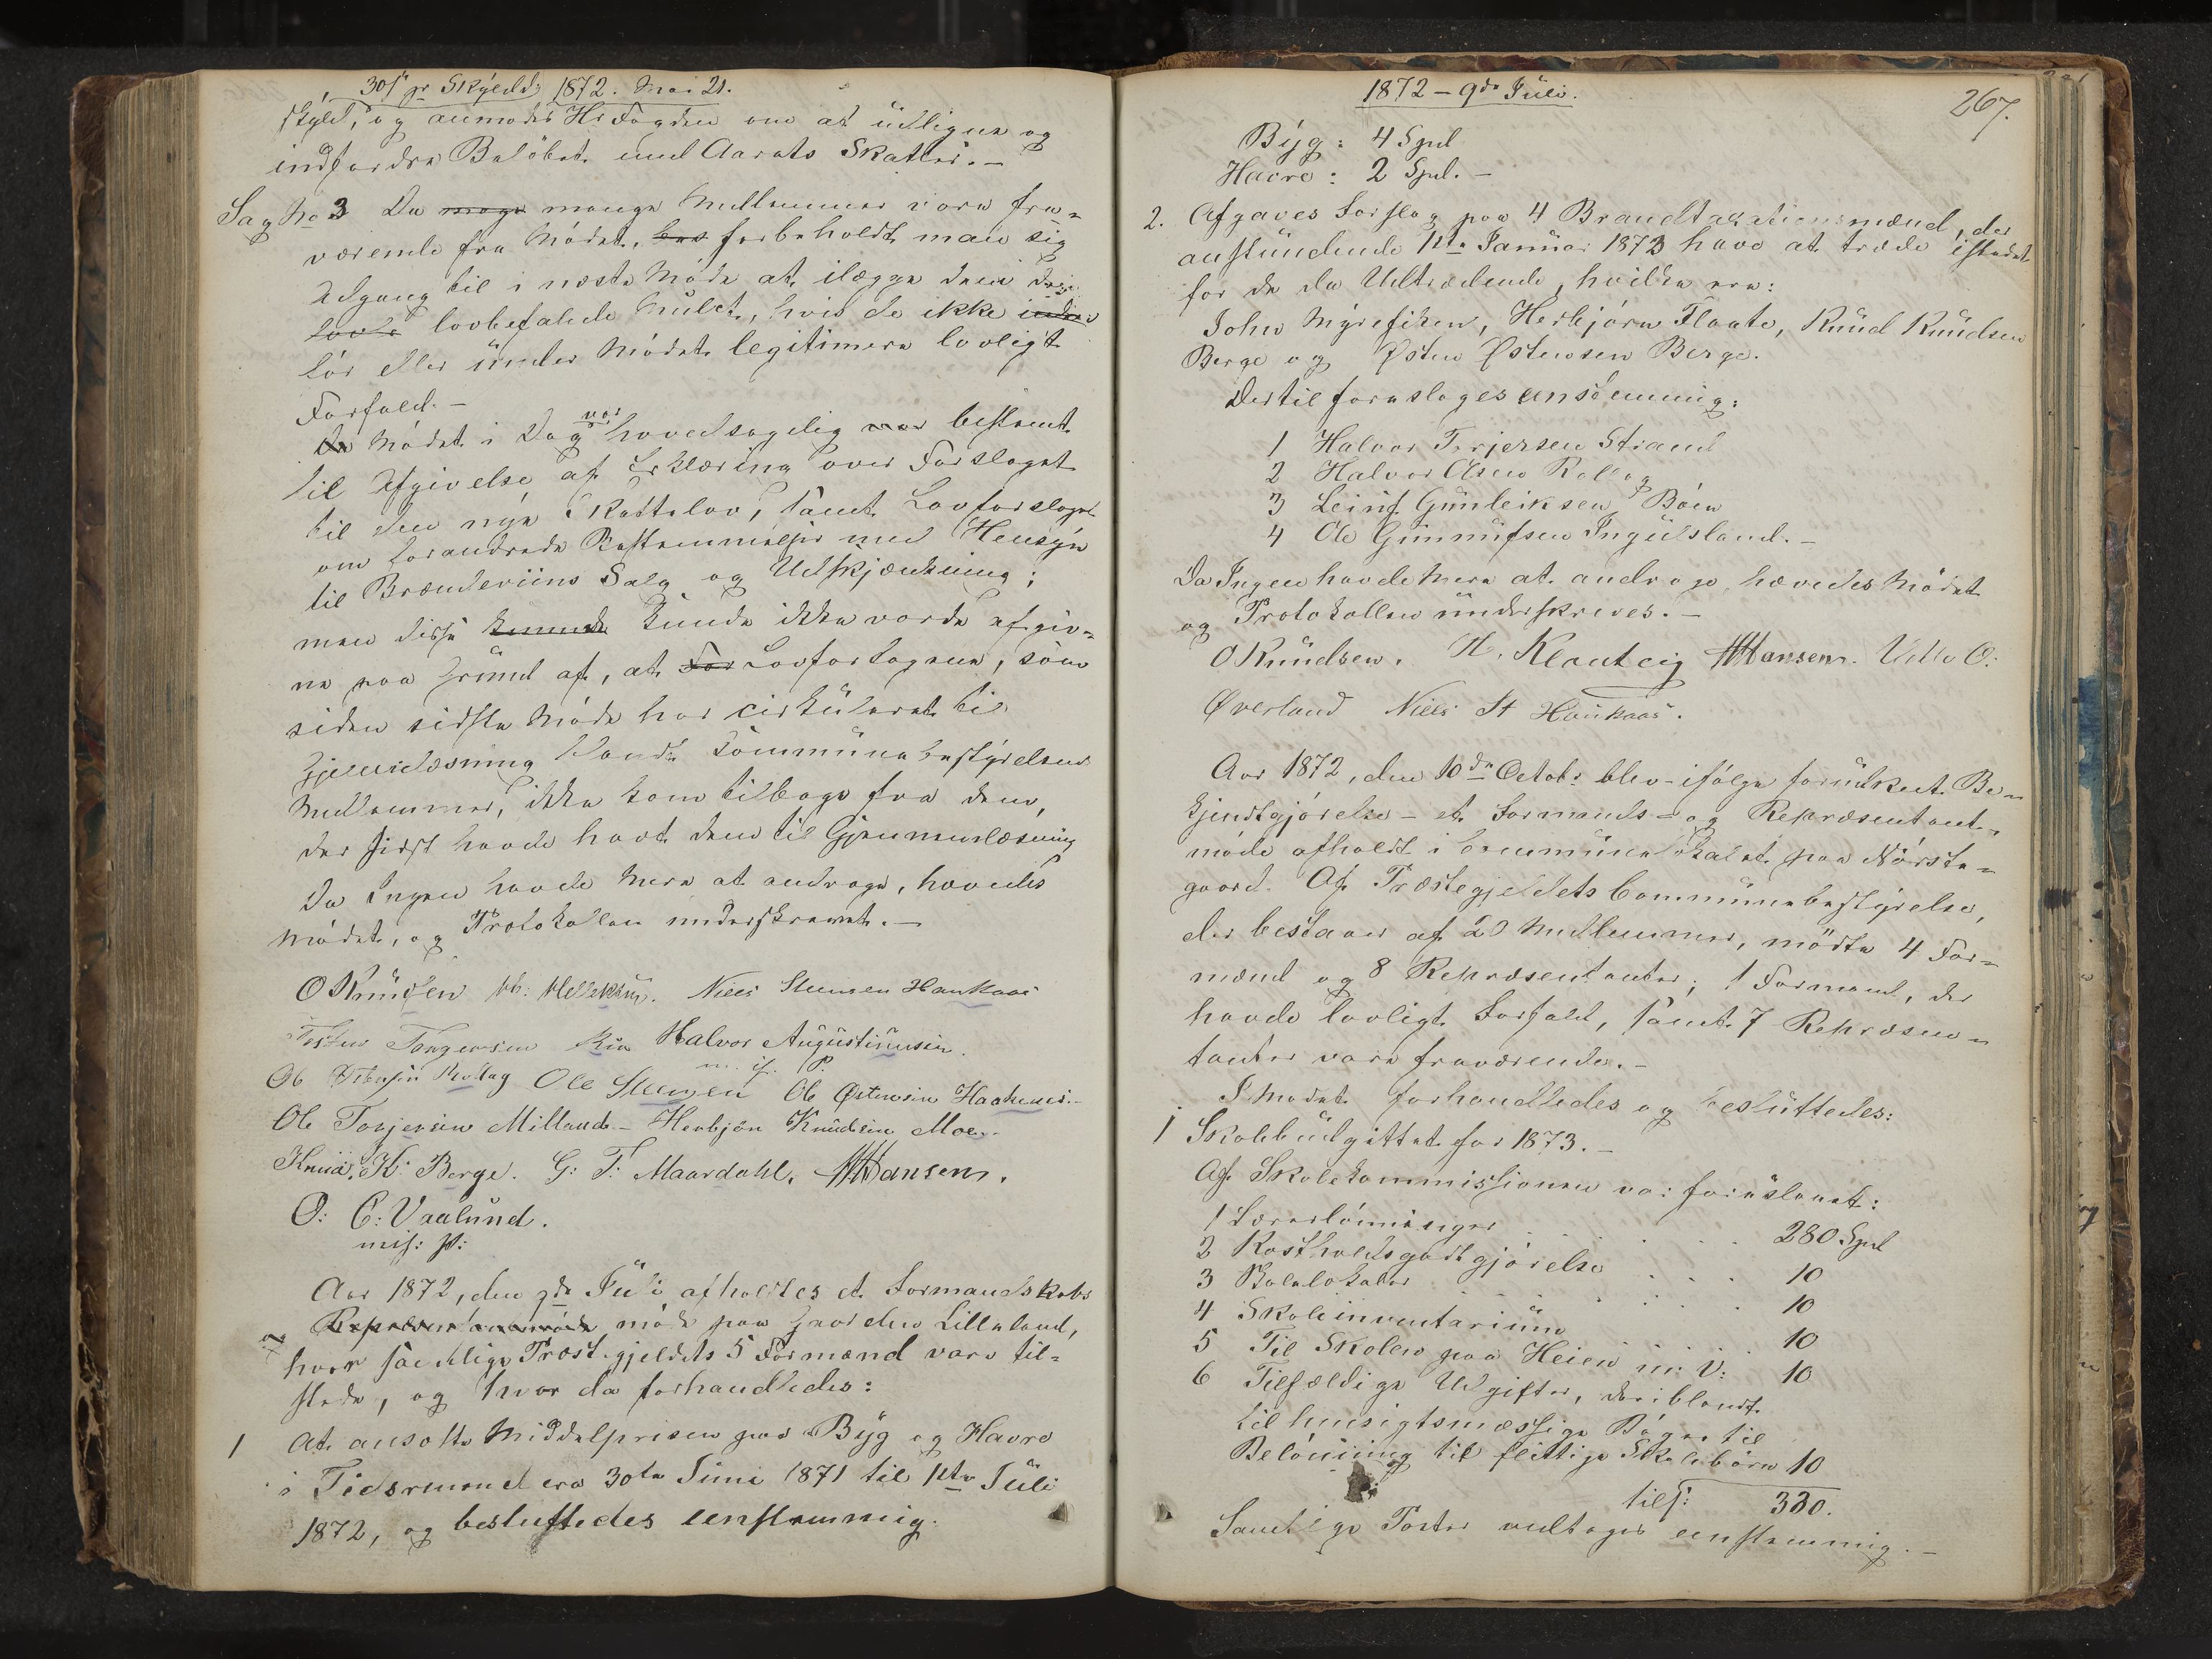 30 ß pr Skyld; 1872. Mai 21.
skyld, og anmodes Hr Fogden om at udligne og
indfordre Beløbet med Aarets Skatter. –
Sag No 3 Da mange Medlemmer vare fra-
værende fra Mødet, forbeholdt man sig
Adgang til i næste Møde at ilægge dem
lovbefalede Mulct, hvis de ikke inden
før eller under Mødet legitimere lovligt
Forfald. –
Mødet i Dag var hovedsagelig bestemt
til Afgivelse af Erklæring over Forslaget
til den nye Skattelov, samt Lovforslaget
om forandrede Bestemmelser med Hensyn
til Brændeviins Salg og Udskjænkning;
men disse kunde ikke vorde afgiv-
ne paa Grund af, at Lovforslagene, som
siden sidste Møde har cirkuleret til
Gjennemlæsning blandt Kommunebestyrelsens
Medlemmer, ikke kom tilbage fra dem,
der sidst havde havt dem til Gjennemlæsning
Da Ingen havde mere at andrage, hævedes
Mødet, og Protokollen underskrevet. –
O Knudsen Niels Steensen Haukaas
Halvor Augustinusen
m. if. P.
Ole Steensen Ole Østensen
Ole Torjersen Milland – Herbjön Knudsen Moe. –
Knud K: Berge. G: T: Maardahl. HHansen.
O: C: Vaalund.
m if: P:
Aar 1872, den 9de Juli afholdtes et Formandskabs
møde paa Gaarden Lilleland,
hvor samtlige Præstegjeldets 5 Formænd vare til-
stede, og hvor da forhandledes:
1 At ansætte Middelprisen paa Byg og Havre
i Tidsrummet fra 30te Juni 1871 til 1ste Juli
1872, og besluttedes eenstemmig.
1872 – 9de Juli.
267.
Byg: 4 Spd
Havre: 2 Spd. –
2. Afgaves Forslag paa 4 Brandtaxationsmænd, der
anstundende 1ste Januar 1873 have at træde istedet
for de da Udtrædende, hvilke ere:
John Myrefiken, Herbjørn Flaate, Knud Knudsen
Berge og Østen Østensen Berge.
Dertil foresloges eenstemmig:
1 Halvor Terjersen Strand
2 Halvor Olsen Rollag
3 Leinf Gunleiksen Bøen
4 Ole Gunnufsen Ingulsland. –
Da Ingen havde mere at andrage, hævedes Mødet
og Protokollen underskreves. –
O Knudsen. H. Kleivtcig HHansen. O:
Øverland Niels St Haukaas.
Aar 1872, den 10de Octobr blev – ifølge forudkynt Be-
kjendtgjørelse – et Formands- og Repræsentant-
møde afholdt i Communelokalet paa Nørste-
gaard. Af Præstegjeldets Communebestyrelse,
der bestaar af 20 Medlemmer, mødte 4 For-
mænd og 8 Repræsentanter; 1 Formand, der
havde lovligt Forfald, samt 7 Repræsen-
tanter vare fraværende. –
I Mødet forhandledes og besluttedes:
1 Skolebudgettet for 1873. –
Af Skolekommissionen var foreslaaet:
1 Lærerlønninger . . . . 280 Spd
2 Kostholdsgodtgjørelse . . . 10
3 Skolelokaler . . . . 10
4 Skoleinventarium . . 10
5 Til Skolen paa Heien m. V: 10
6 Tilfældige Udgifter, deriblandt
til hensigtsmæssige Bøger til
Belønning til flittige Skolebørn 10
tils: 330.
Samtlige Poster vedtages eenstemmig. –